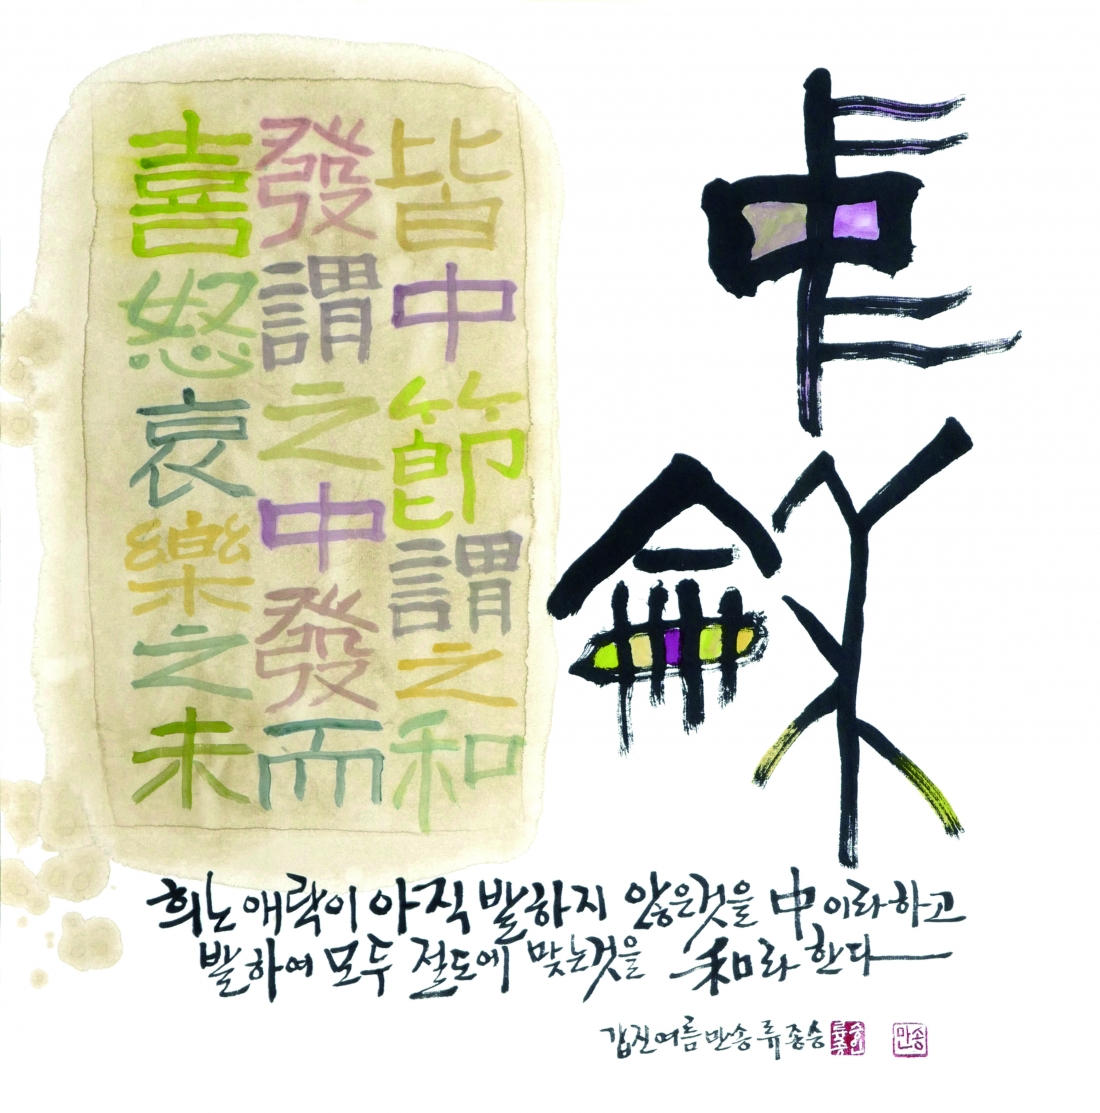 喜怒哀樂之未
發謂之中發而
皆中節謂之和
中
龢
희노애락이 아직 발하지 않은것을 中이라하고
발하여 모두 절도에 맞는것을 和라 한다
갑진여름 만송 류종승
만송